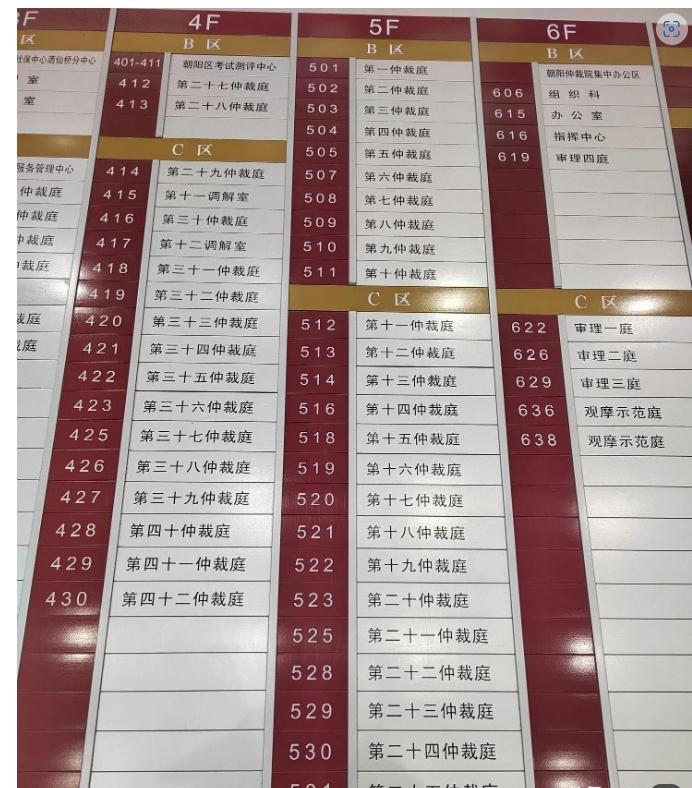 3F
区
社保中心酒仙桥分中心
室
室
服务管理中心
仲裁庭
仲裁庭
仲裁庭
仲裁庭
裁庭
裁庭
4F
B 区
401-411 朝阳区考试测评中心
412 第二十七仲裁庭
413 第二十八仲裁庭
C 区
414 第二十九仲裁庭
415 第十一调解室
416 第三十仲裁庭
417 第十二调解室
418 第三十一仲裁庭
419 第三十二仲裁庭
420 第三十三仲裁庭
421 第三十四仲裁庭
422 第三十五仲裁庭
423 第三十六仲裁庭
425 第三十七仲裁庭
426 第三十八仲裁庭
427 第三十九仲裁庭
428 第四十仲裁庭
429 第四十一仲裁庭
430 第四十二仲裁庭
5F
B 区
501 第一仲裁庭
502 第二仲裁庭
503 第三仲裁庭
504 第四仲裁庭
505 第五仲裁庭
507 第六仲裁庭
508 第七仲裁庭
509 第八仲裁庭
510 第九仲裁庭
511 第十仲裁庭
C 区
512 第十一仲裁庭
513 第十二仲裁庭
514 第十三仲裁庭
516 第十四仲裁庭
518 第十五仲裁庭
519 第十六仲裁庭
520 第十七仲裁庭
521 第十八仲裁庭
522 第十九仲裁庭
523 第二十仲裁庭
525 第二十一仲裁庭
528 第二十二仲裁庭
529 第二十三仲裁庭
530 第二十四仲裁庭
6F
B 区
朝阳仲裁院集中办公区
606 组织科
615 办公室
616 指挥中心
619 审理四庭
C 区
622 审理一庭
626 审理二庭
629 审理三庭
636 观摩示范庭
638 观摩示范庭